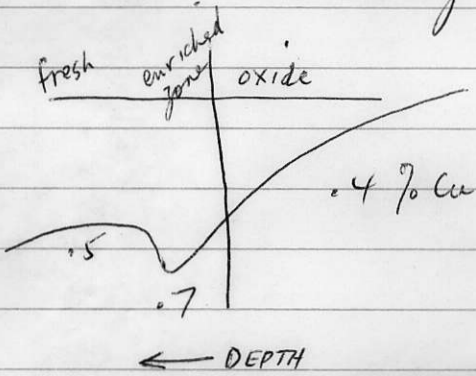 fresh
enriched
zone
oxide
.4 % Cu
.5
.7
← DEPTH